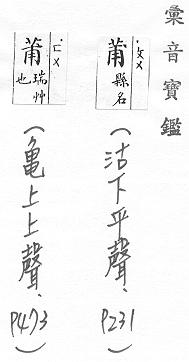 彙音寶鑑
·ㄆㄨ
莆縣名
（沽下平聲、P231）
·ㄈㄨ
莆瑞艸也
（龜上上聲、P473）